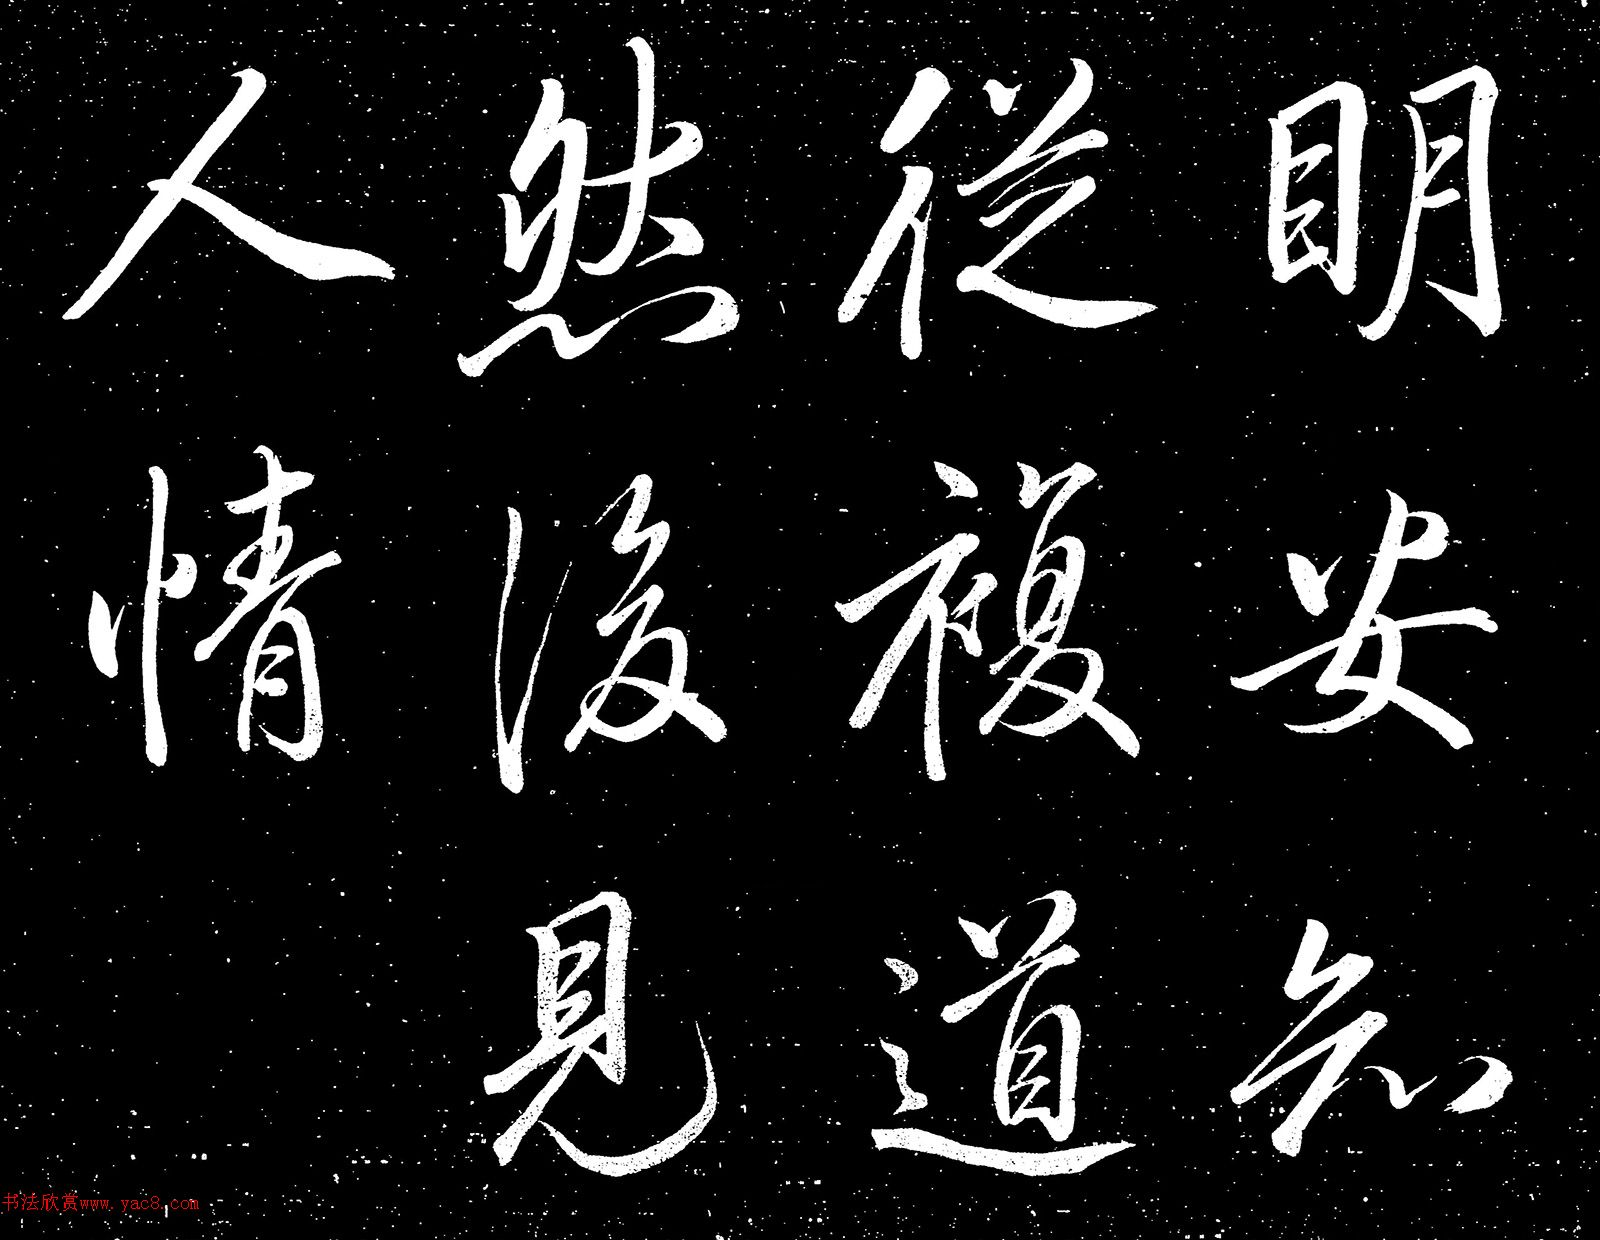 明安知
從複道
然後見
人情
书法欣赏www.yac8.com